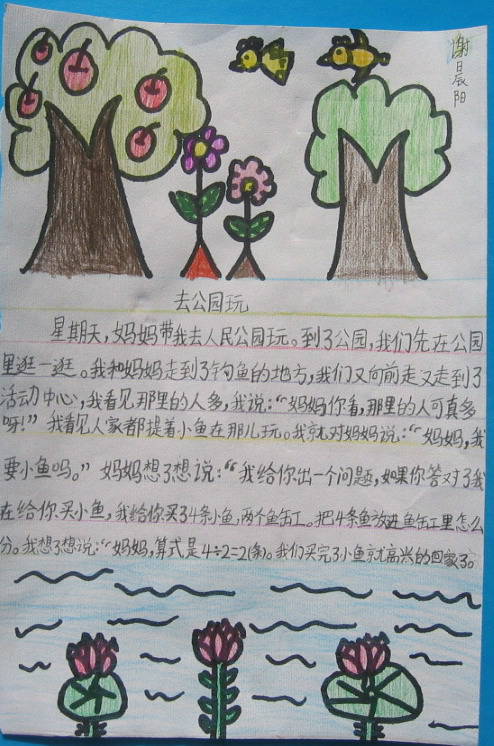 谢晨阳
去公园玩
星期天,妈妈带我去人民公园玩。到了公园,我们先在公园
里逛一逛。我和妈妈走到了钓鱼的地方,我们又向前走又走到了
活动中心,我看见那里的人多,我说:“妈妈你看,那里的人可真多
呀!”我看见人家都提着小鱼在那儿玩。我就对妈妈说:“妈妈,我
要小鱼吗。”妈妈想了想说:“我给你出一个问题,如果你答对了我
在给你买小鱼,我给你买了4条小鱼,两个鱼缸工。把4条鱼放进鱼缸工里怎么
分。我想了想说:“妈妈,算式是4÷2=2(条)。我们买完了小鱼就高兴的回家了。